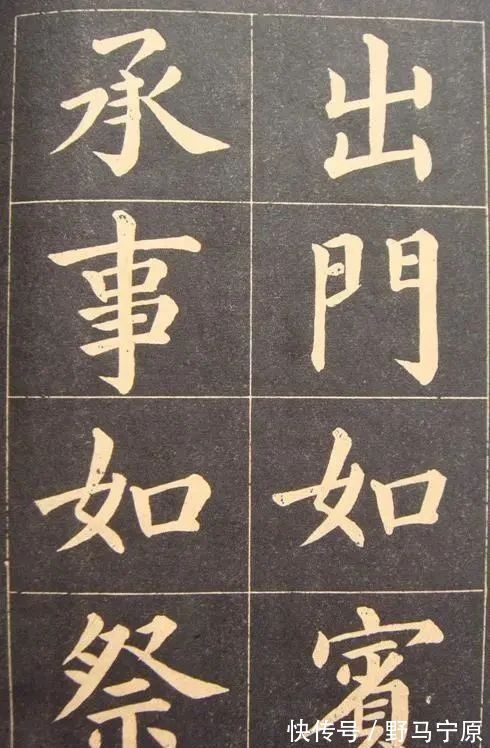 出門如賓
承事如祭
快传号/野马宁原